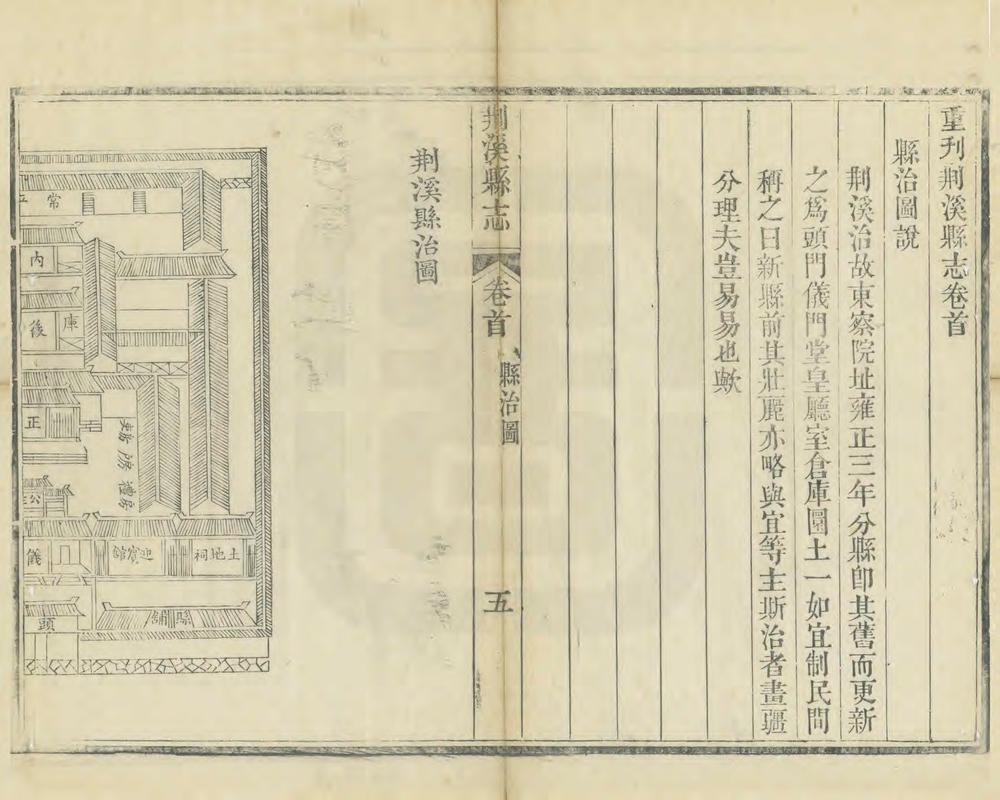 重刊荆溪縣志卷首
縣治圖說
荆溪治故東察院址雍正三年分縣卽其舊而更新
之爲頭門儀門堂皇廳室倉庫圄土一如宜制民間
稱之曰新縣前其壯麗亦略與宜等主斯治者畫疆
分理夫豈易易也歟
荆溪縣志
卷首
縣治圖
五
荆溪縣治圖
常
內
庫
後
正
吏房
房
禮房
土地祠
迎賓館
儀
縣舖
頭